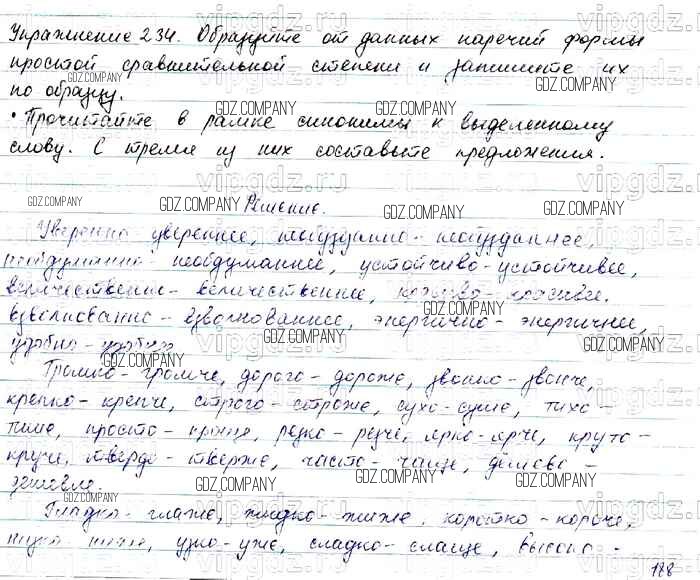 Упражнение 234. Образуйте от данных наречий формы
простой сравнительной степени и запишите их
по образцу.
• Прочитайте в рамке синонимы к выделенному
слову. С тремя из них составьте предложения.
Решение.
Уверенно увереннее, необузданно - необузданнее,
необдуманнее, устойчиво - устойчивее,
величественно - величественнее, красиво - красивее.
взволнованно - взволнованнее, энергично - энергичнее,
удобно - удобнее
Громко - громче, дорого - дороже, звонко - звонче,
крепко - крепче, строго - строже, сухо - суше, тихо -
тише, просто - проще, резко - резче, ярко - ярче, круто -
круче, твердо - тверже, часто - чаще, дешево -
дешевле.
Гладко - глаже, жидко - жиже, коротко - короче,
ниже, узко - уже, сладко - слаще, высоко -
188
GDZ.COMPANY
vipgdz.ru